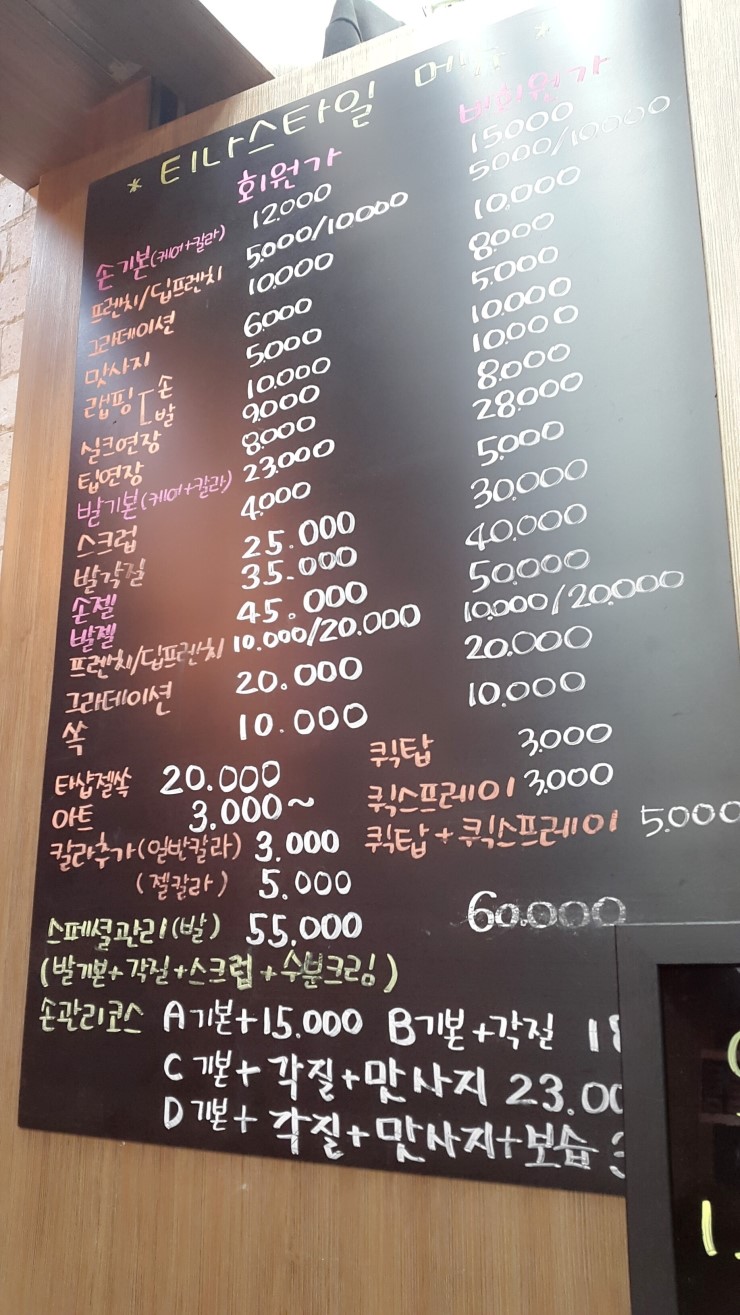 * 티나스타일 메뉴 *
회원가 비회원가
손기본(케어+칼라) 12.000 15000
프렌치/딥프렌치 5,000/10000 5000/10000
그라데이션 10,000 10,000
맛사지 6,000 8,000
랩핑 [ 손 5,000 5,000
발 10,000 10,000
실크연장 9,000 10,000
팁연장 8,000 8,000
발기본(케어+칼라) 23,000 28,000
스크럽 4,000 5,000
발각질 25.000 30,000
손젤 35.000 40,000
발젤 45.000 50,000
프렌치/딥프렌치 10.000/20.000 10,000/20,000
그라데이션 20.000 20,000
쏙 10.000 10,000
타샵젤쏙 20.000 퀵탑 3,000
아트 3,000~ 퀵스프레이 3,000
칼라추가(일반칼라) 3.000 퀵탑+퀵스프레이 5.000
(젤칼라) 5.000
스페셜관리(발) 55.000 60.000
(발기본+각질+스크럽+수분크림)
손관리코스 A기본+15.000 B기본+각질
C 기본+각질+맛사지 23.00
D 기본+각질+맛사지+보습